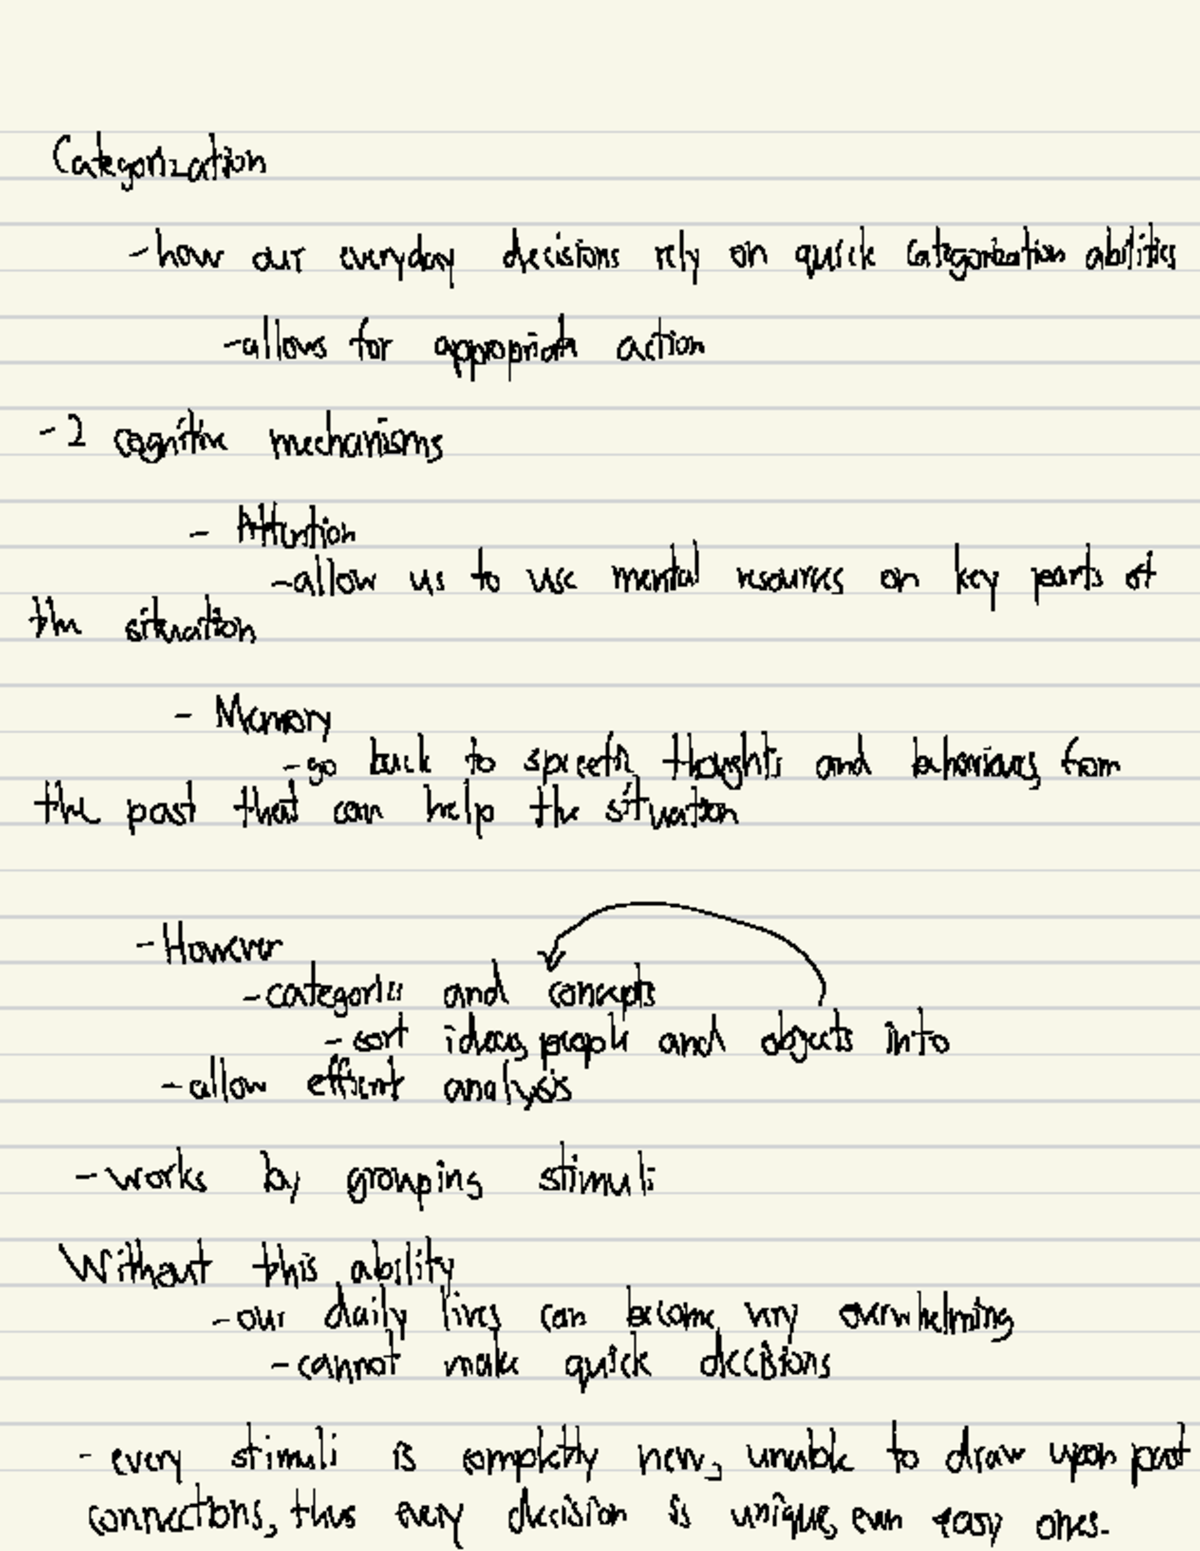 Categorization
- how our everyday decisions rely on quick categorization abilities
- allows for appropriate action
- 2 cognitive mechanisms
- Attention
- allow us to use mental resources on key parts of
the situation
- Memory
- go back to specific thoughts and behaviours from
the past that can help the situation
- However
- categories and concepts
- sort ideas, people and objects into
- allow efficient analysis
- works by grouping stimuli
Without this ability
- our daily lives can become very overwhelming
- cannot make quick decisions
- every stimuli is completly new, unable to draw upon past
connections, thus every decision is unique, even easy ones.